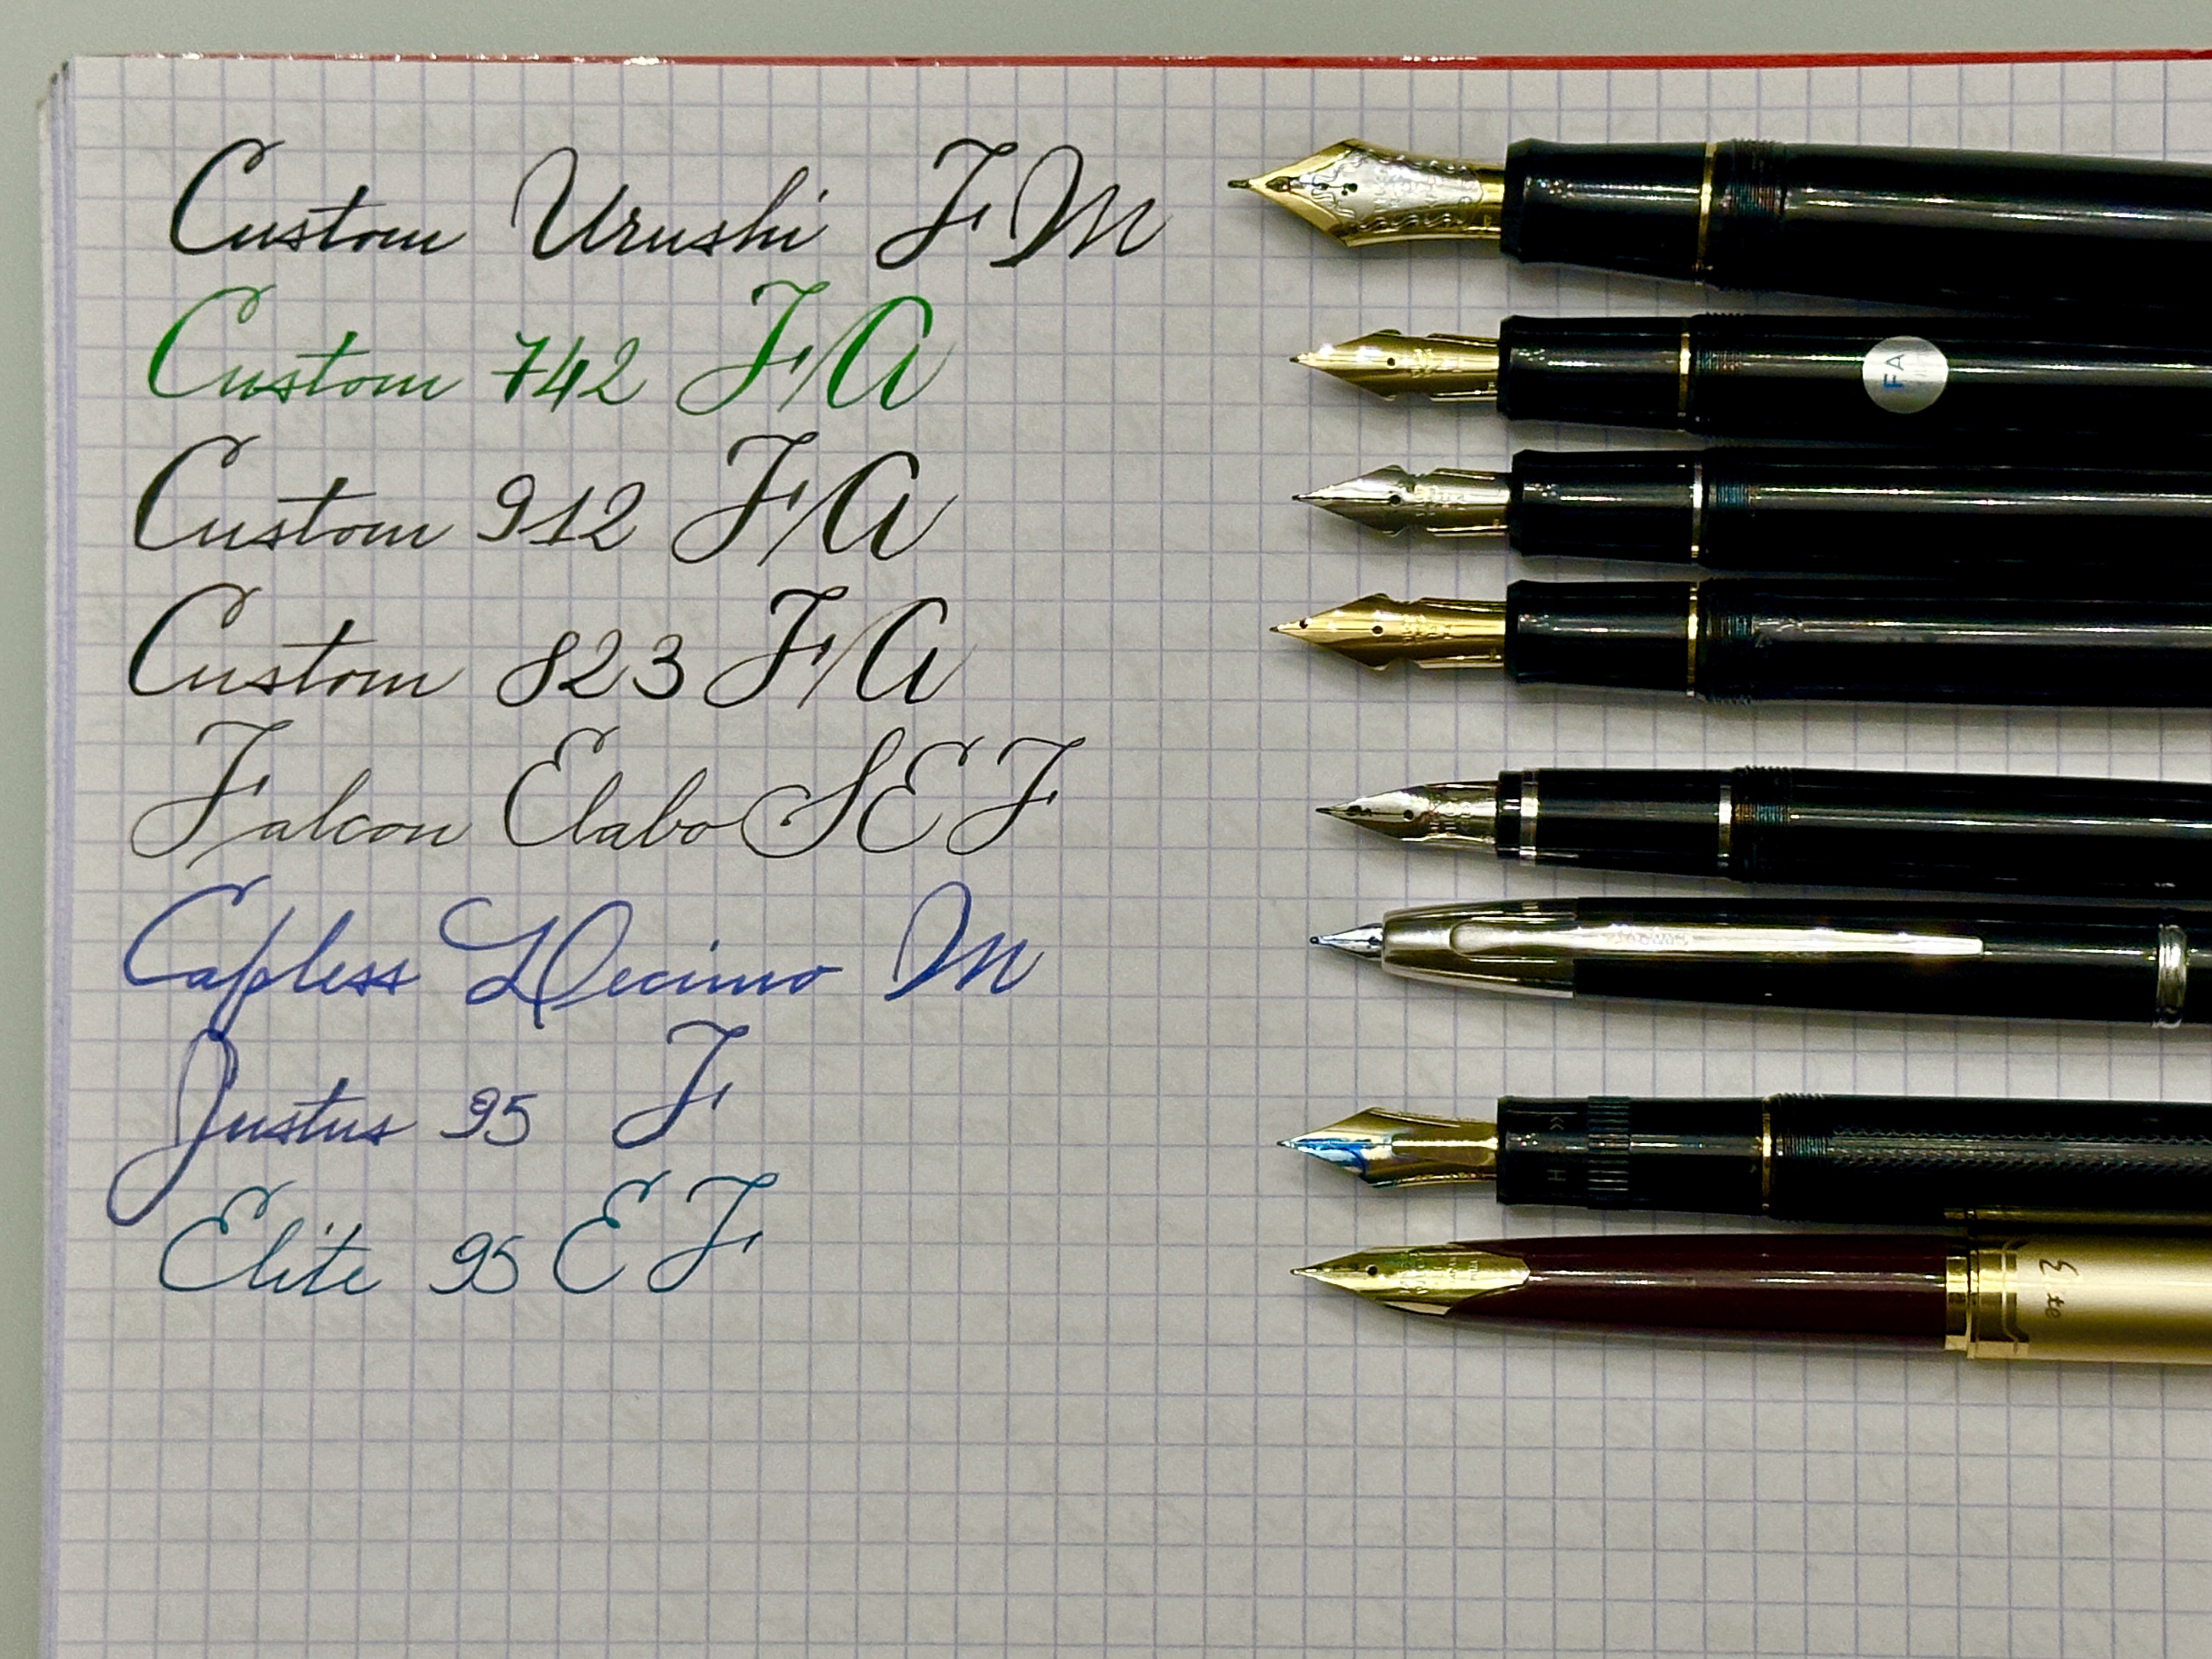 Custom Urushi FM
Custom 742 FA
FA
Custom 912 FA
Custom 823 FA
Falcon Elabo SEF
Capless Decimo M
Justus 95 F
H
Elite 95 EF